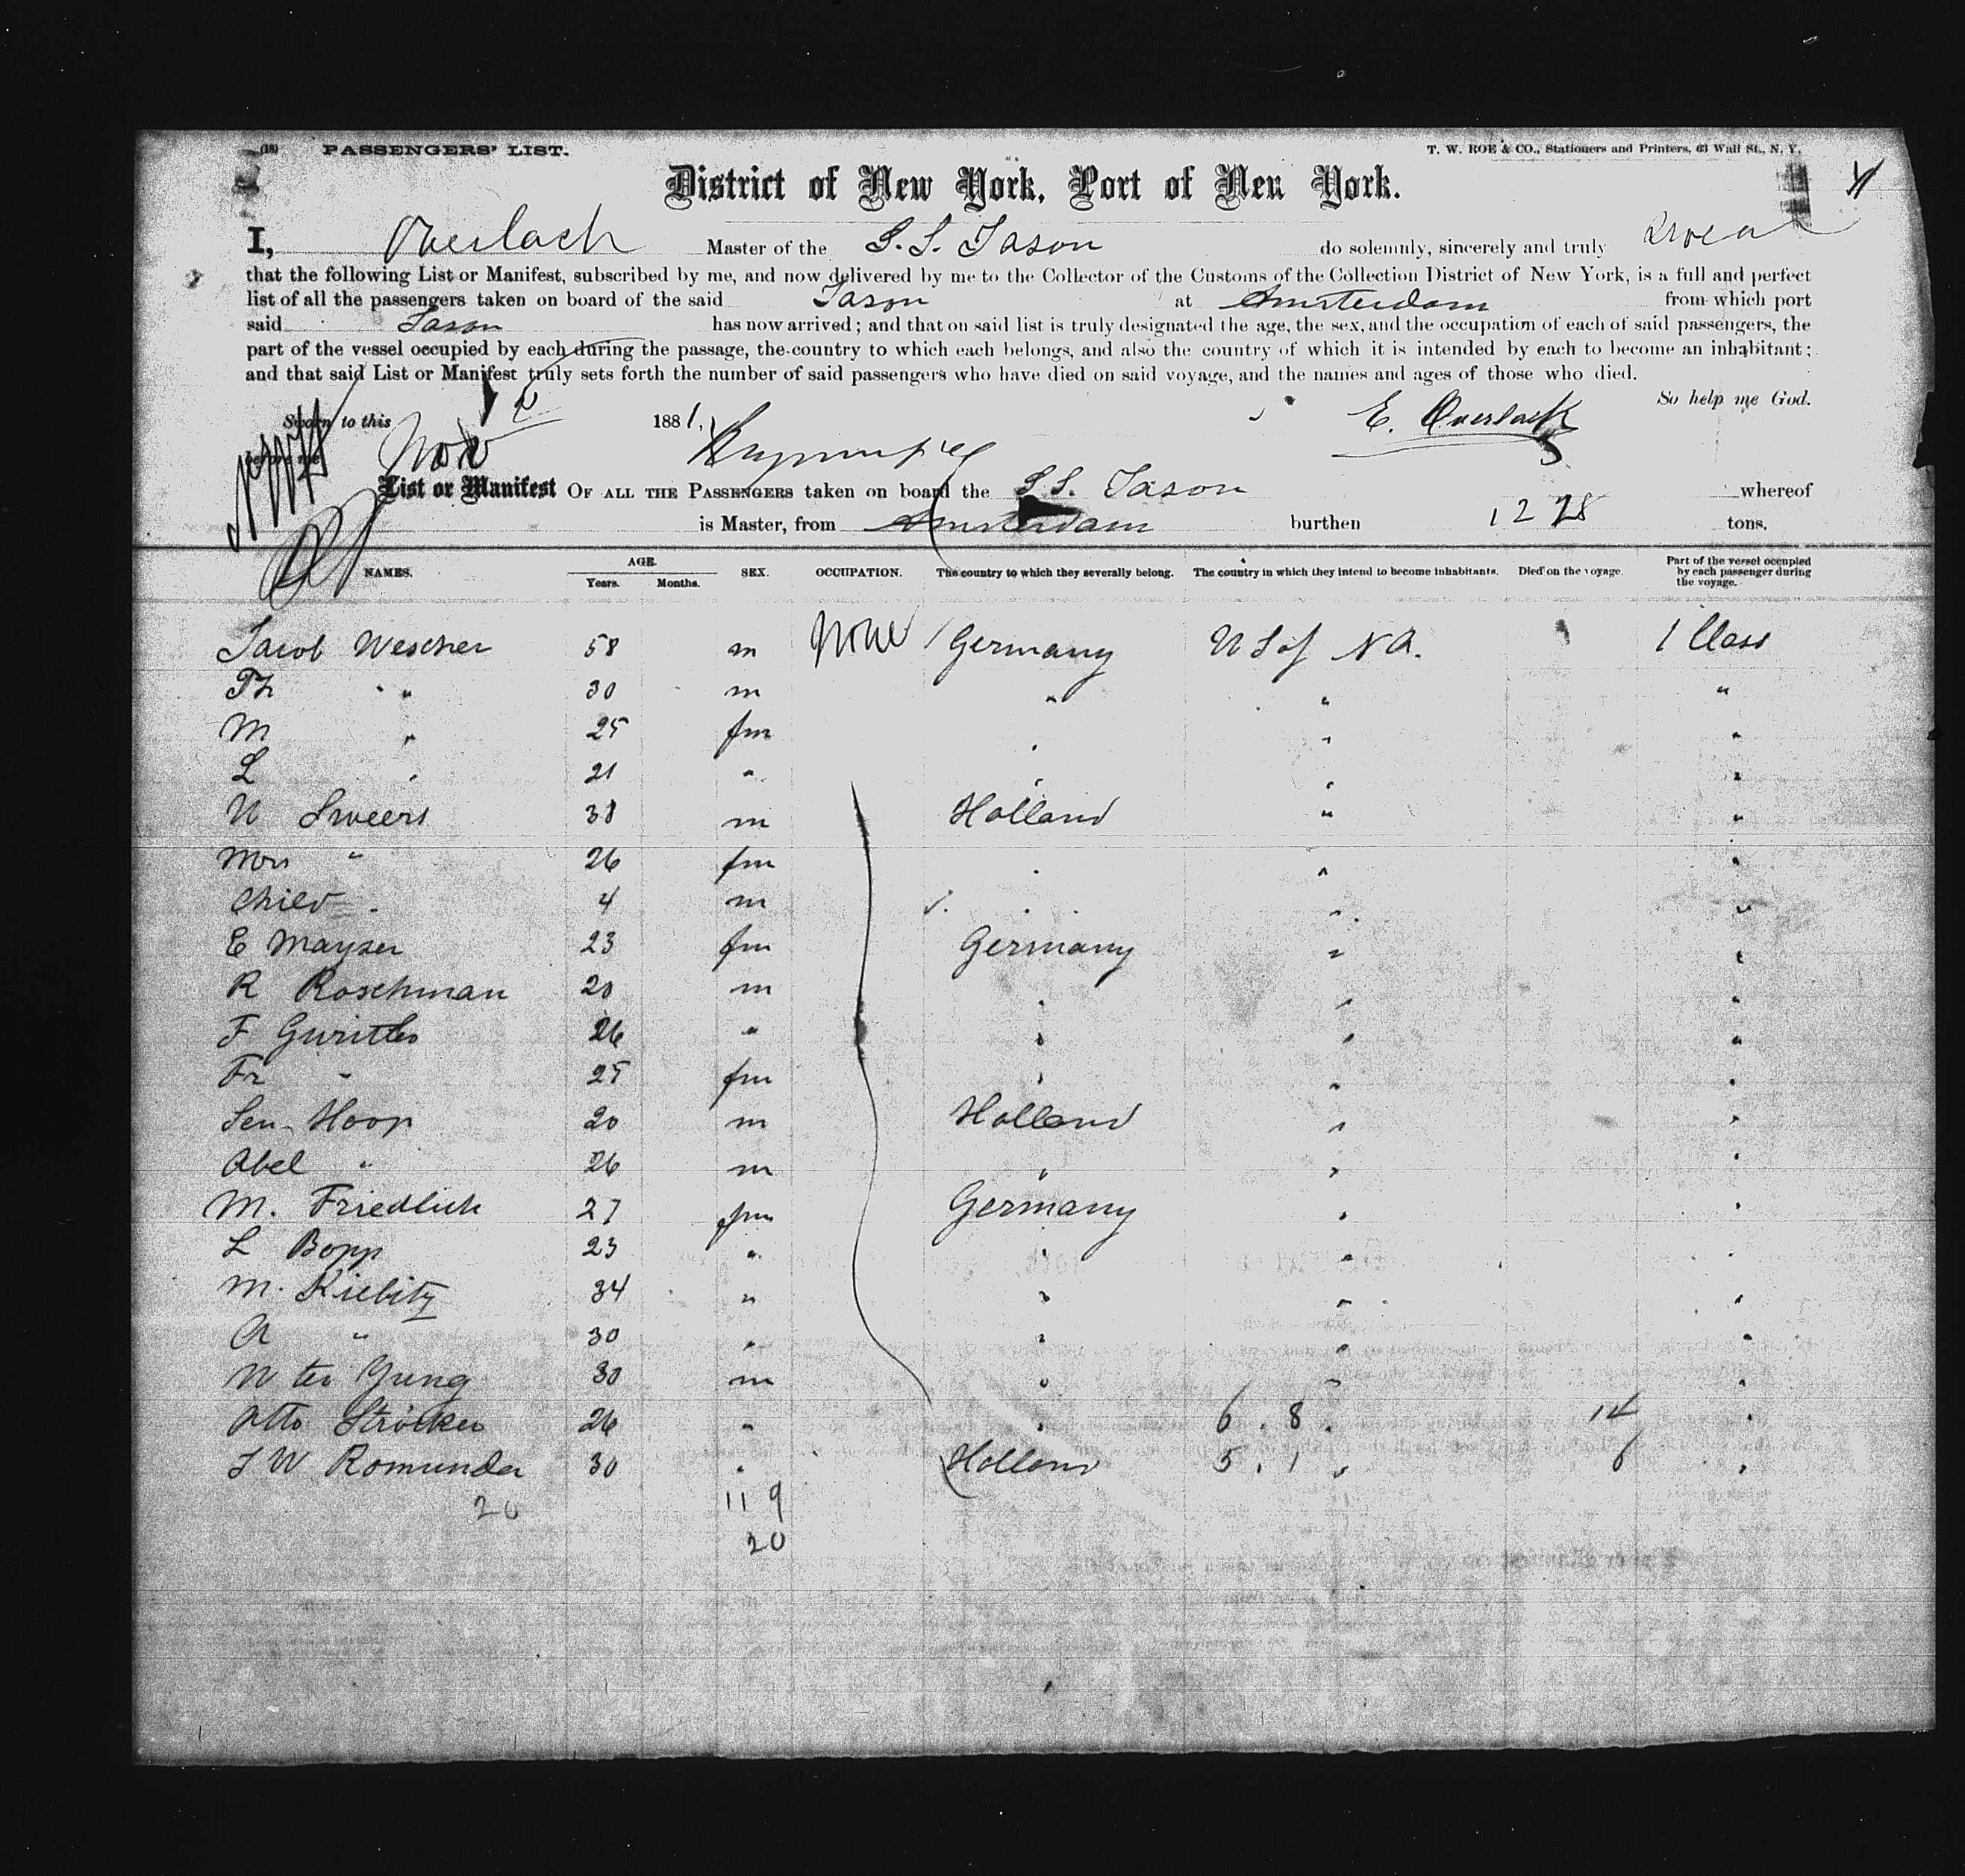 (18) PASSENGERS' LIST. T. W. ROE & CO., Stationers and Printers, 63 Wall St., N. Y.
District of New York, Port of New York.
I, Overlach Master of the S. S. Jason do solemnly, sincerely and truly swear
that the following List or Manifest, subscribed by me, and now delivered by me to the Collector of the Customs of the Collection District of New York, is a full and perfect
list of all the passengers taken on board of the said Jason at Amsterdam from which port
said Jason has now arrived; and that on said list is truly designated the age, the sex, and the occupation of each of said passengers, the
part of the vessel occupied by each during the passage, the country to which each belongs, and also the country of which it is intended by each to become an inhabitant;
and that said List or Manifest truly sets forth the number of said passengers who have died on said voyage, and the names and ages of those who died.
So help me God.
Sworn to this 1881, E. Overlack
before me Nov
List or Manifest OF ALL THE PASSENGERS taken on board the S.S. Jason whereof
is Master, from Amsterdam burthen 1278 tons.
NAMES. AGE. Years. Months. SEX. OCCUPATION. The country to which they severally belong. The country in which they intend to become inhabitants. Died on the voyage. Part of the vessel occupied by each passenger during the voyage.
Jacob Wescher 58 m None Germany U S of N A. 1 Class
Th " 30 m " " "
M " 25 fm " " "
L " 21 " " " "
N Sweers 38 m Holland " "
Mrs " 26 fm " " "
Child " 4 m " " "
E Mayser 23 fm Germany " "
R Roschman 20 m " " "
F 26 " " " "
Fr " 25 fm " " "
Hoop 20 m Holland " "
Abel " 26 m " " "
M. Friedlich 27 fm Germany " "
L Bopp 23 " " " "
M. Kiebitz 34 " " " "
A " 30 " " " "
W ter Yung 30 m " " "
Otto Strocker 26 " " 6 . 8 . 14 "
J W Romunder 30 " Holland 5 . 1 " 6 "
20 11 9
20